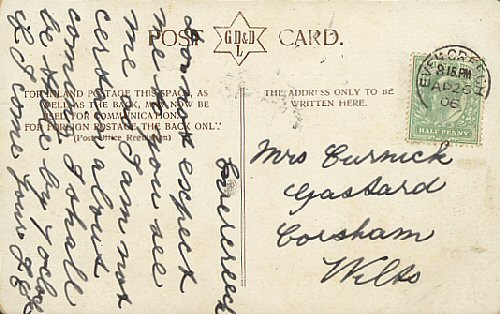 POST GD&D L CARD.
FOR INLAND POSTAGE THIS SPACE, AS
WELL AS THE BACK, MAY NOW BE
USED FOR COMMUNICATION.
FOR FOREIGN POSTAGE THE BACK ONLY.
(Post Office Regulation)
THE ADDRESS ONLY TO BE
WRITTEN HERE.
EVERCREECH
8.15 PM
AP 25
06
HALF PENNY
Mrs Curnick
Gastard
Corsham
Wilts
Evercreech
Do not expect
me till you see
me as I am not
certain about
coming I shall
be there by 7 oclock
if I come yours